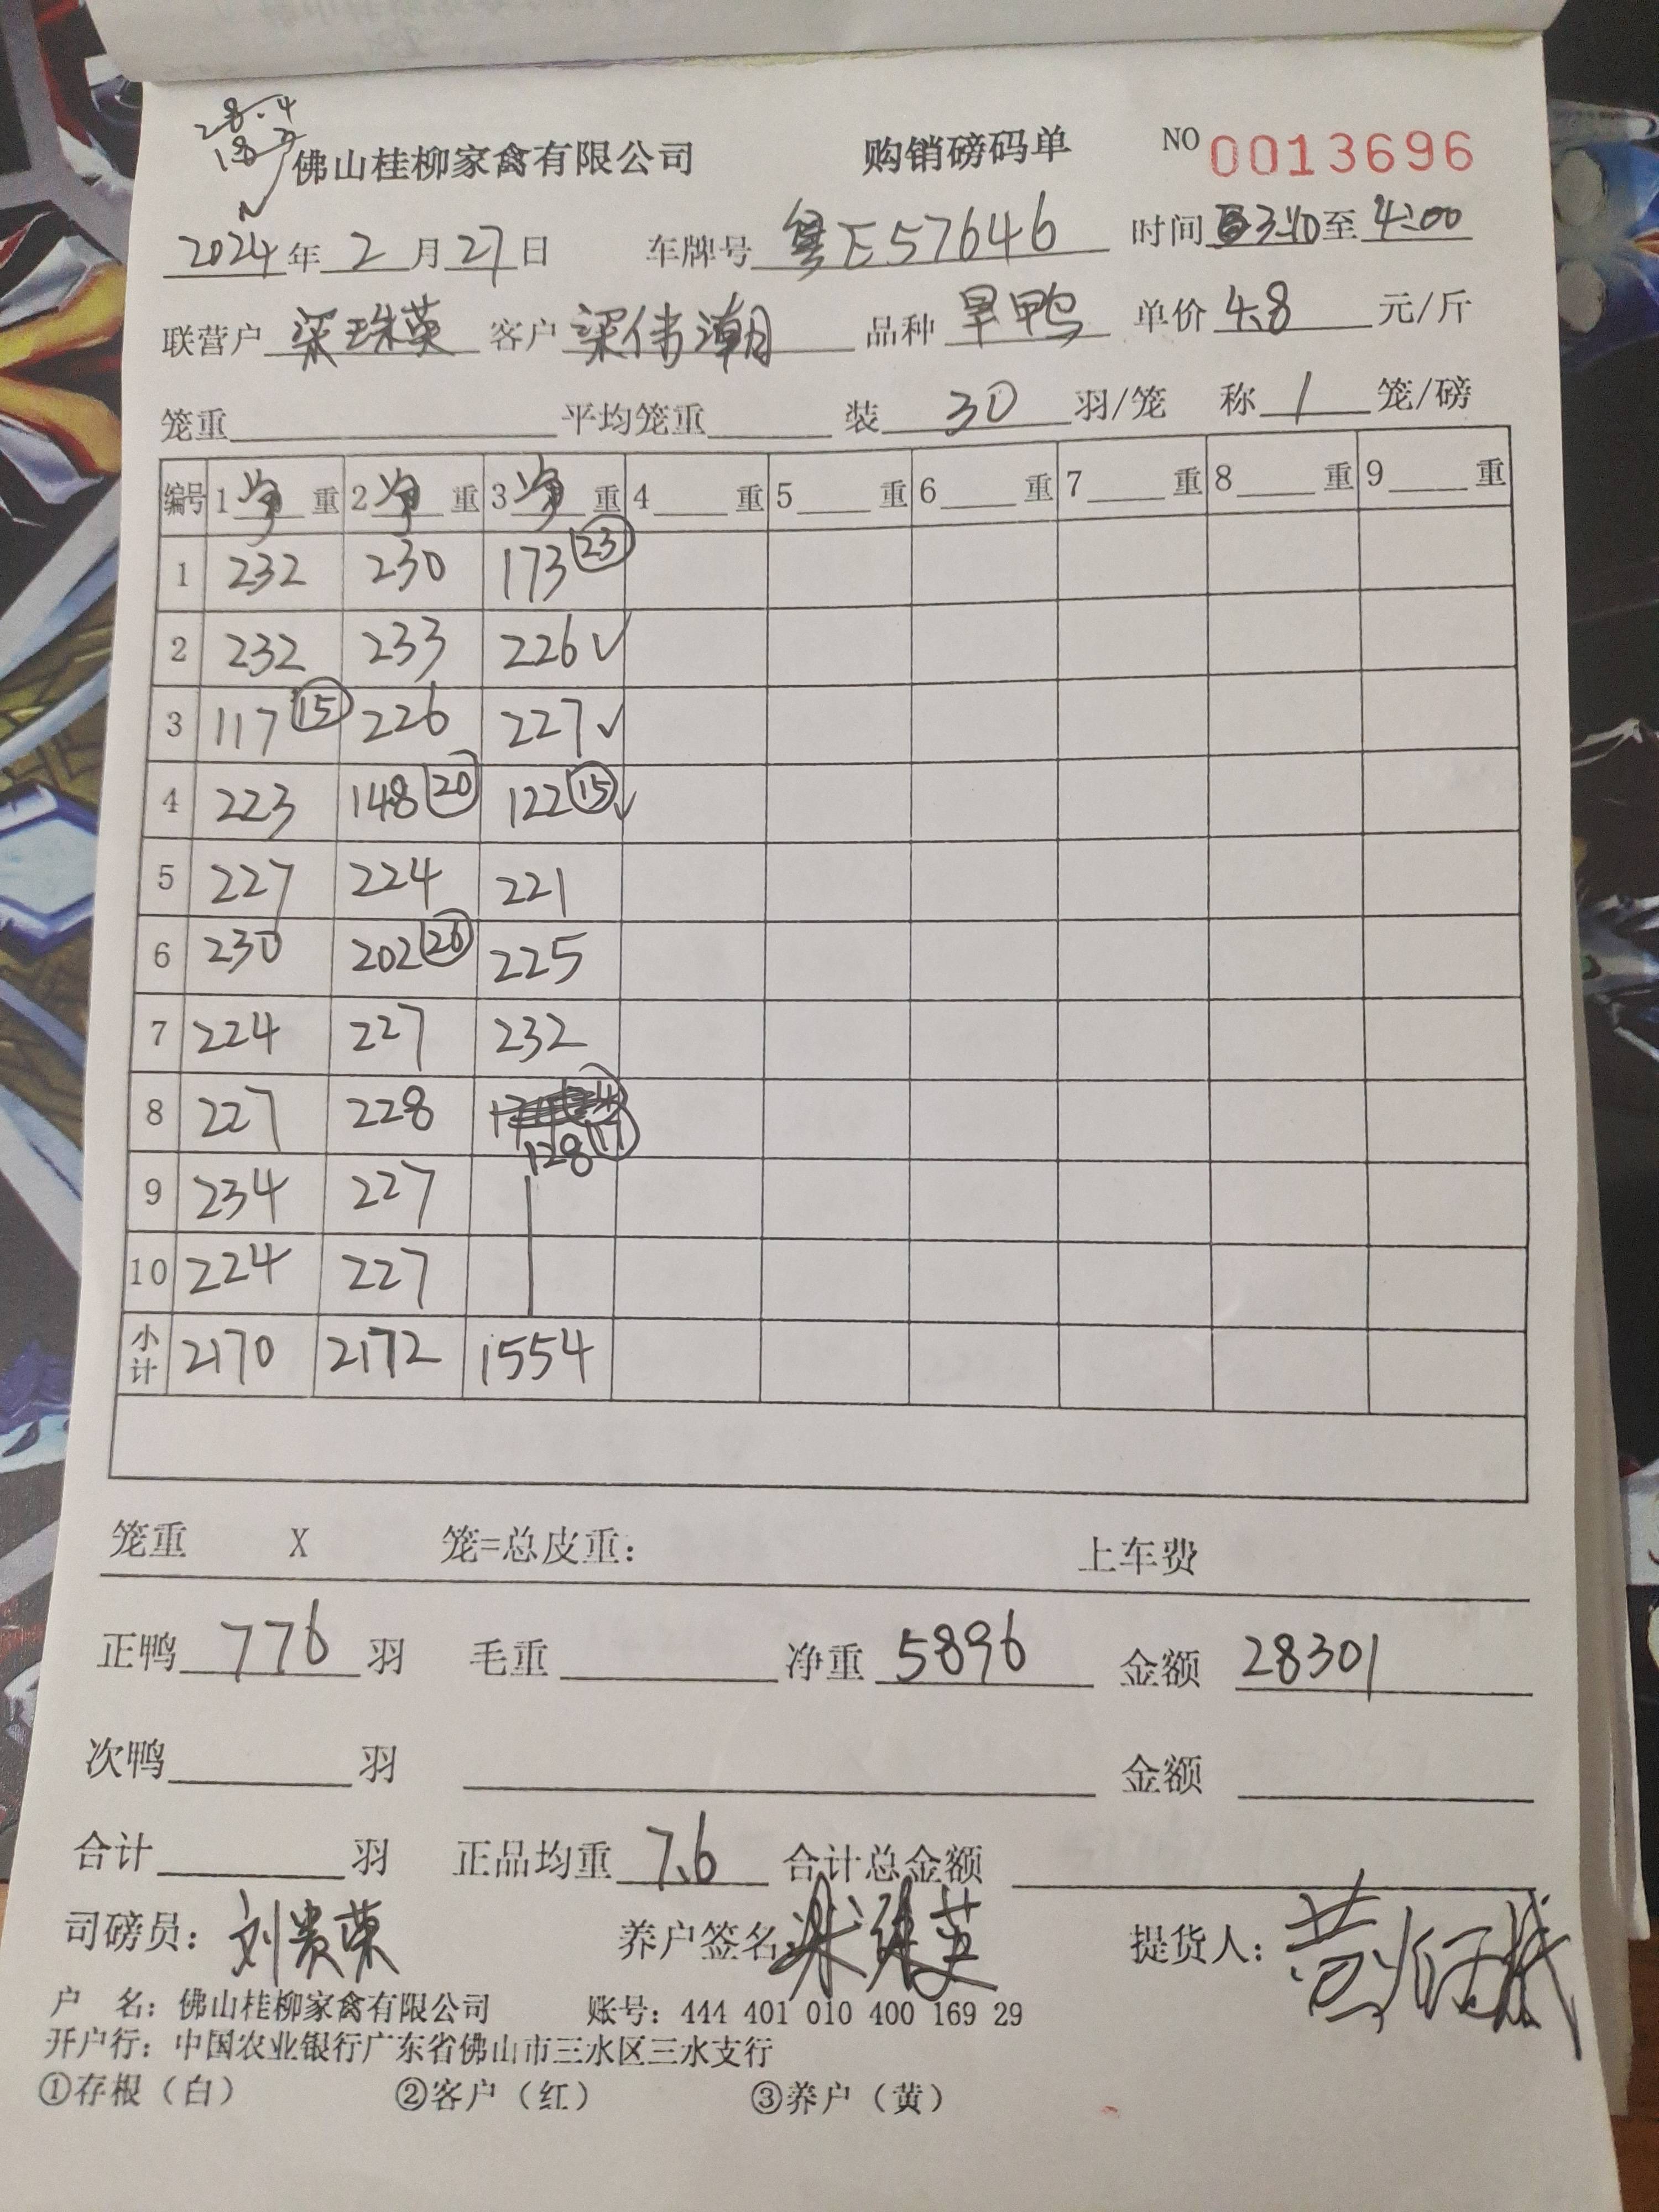 28.4
佛山桂柳家禽有限公司 购销磅码单 NO 0013696
2024年2月27日 车牌号 粤E57646 时间 3:10至4:00
联营户 梁珠英 客户 梁伟潮 品种 旱鸭 单价 4.8 元/斤
笼重 平均笼重 装 30 羽/笼 称 1 笼/磅
编号 1净重 2净重 3净重 4重 5重 6重 7重 8重 9重
1 232 230 173 (23)
2 232 233 226 ✓
3 117 (15) 226 227 ✓
4 223 148 (20) 122 (15) ✓
5 227 224 221
6 230 202 (26) 225
7 224 227 232
8 227 228 128 (17)
9 234 227
10 224 227
小计 2170 2172 1554
笼重 X 笼=总皮重: 上车费
正鸭 776 羽 毛重 净重 5896 金额 28301
次鸭 羽 金额
合计 羽 正品均重 7.6 合计总金额
司磅员: 刘贵荣 养户签名: 提货人:
户 名: 佛山桂柳家禽有限公司 账号: 444 401 010 400 169 29
开户行: 中国农业银行广东省佛山市三水区三水支行
①存根（白） ②客户（红） ③养户（黄）